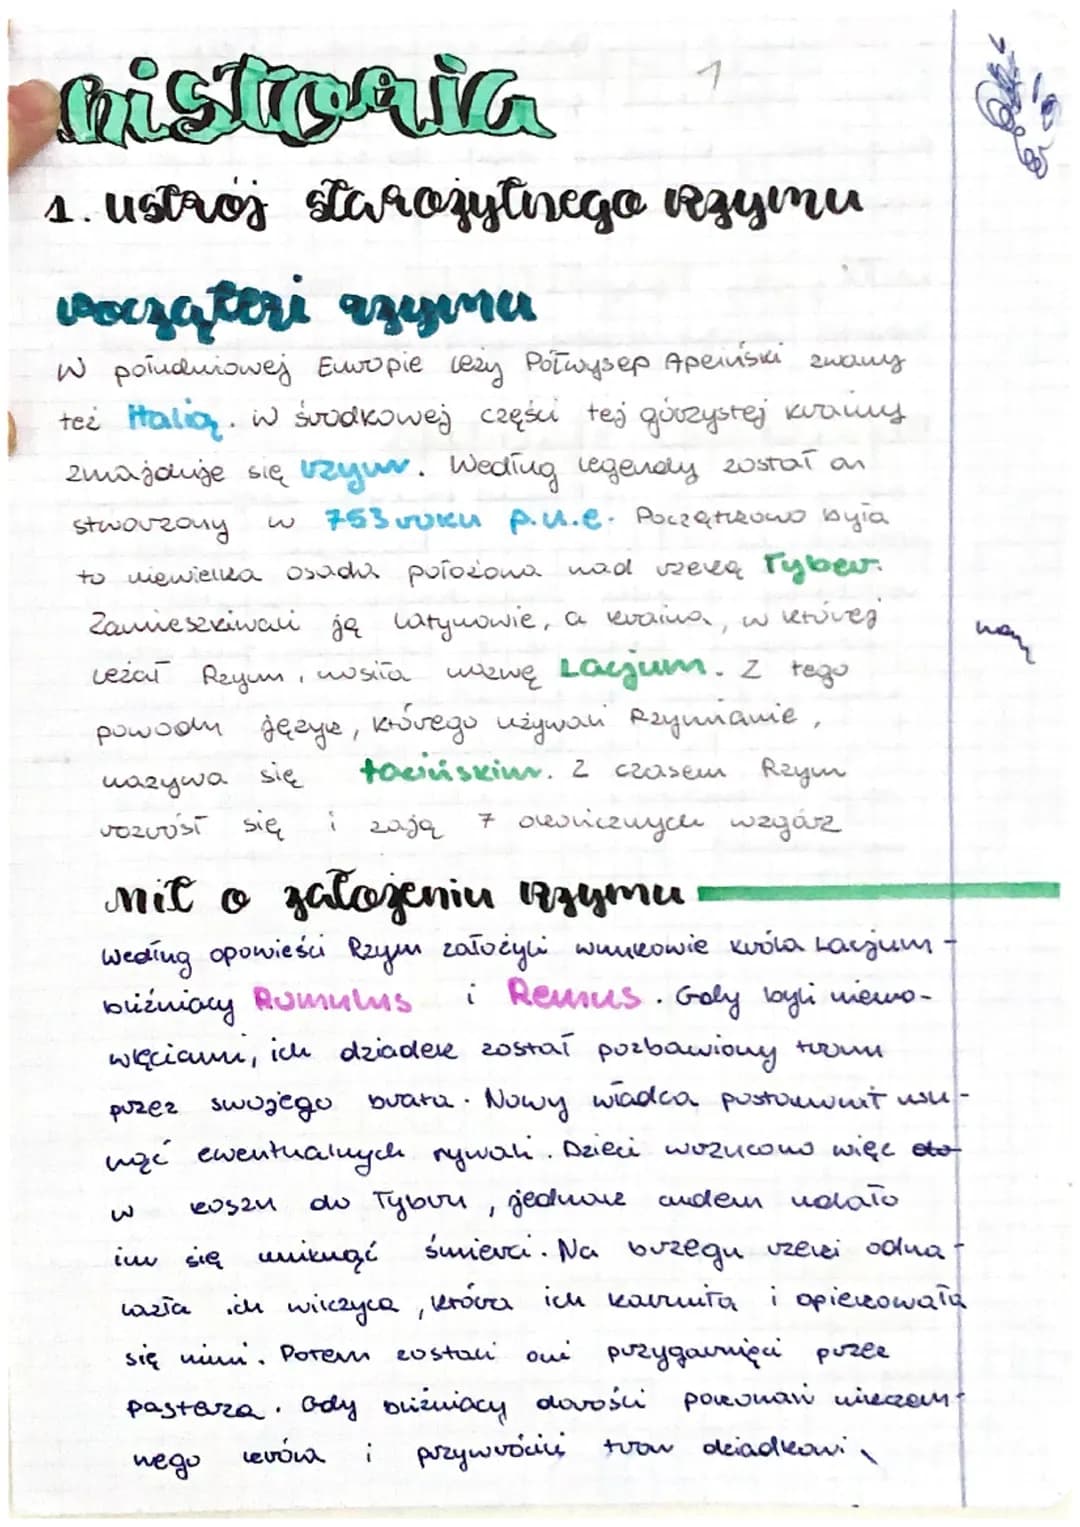 historia
1
1. ustrój starożytnego rzymu
początki rzymu
W południowej Europie leży Półwysep Apeniński zwany
też Italią. W środkowej części tej górzystej krainy
zmajduje się rzym. Według legendy został on
stworzony w 753 roku p.n.e. Początkowo była
to niewielka osada położona nad rzeką Tyber.
Zamieszkiwali ją latynowie, a kraina, w której
leżał Rzym, nosiła nazwę Lacjum. Z tego
powodu język, którego używali Rzymianie,
nazywa się łacińskim. Z czasem Rzym
rozrósł się i zają 7 okolicznych wzgórz
mit o założeniu rzymu
Według opowieści Rzym założyli wnukowie króla Lacjum -
bliźniacy Romulus i Remus. Gdy byli niemo-
wlęciami, ich dziadek został pozbawiony tronu
przez swojego brata. Nowy władca postanowił usu-
nąć ewentualnych rywali. Dzieci wrzucono więc do
w koszu do Tybru, jednak cudem udało
im się uniknąć śmierci. Na brzegu rzeki odna-
lazła ich wilczyca, która ich karmiła i opiekowała
się nimi. Potem zostali oni przygarnięci przez
pasterza. Gdy bliźniacy dorośli pokonali nieczem-
nego króla i przywrócili tron dziadkowi